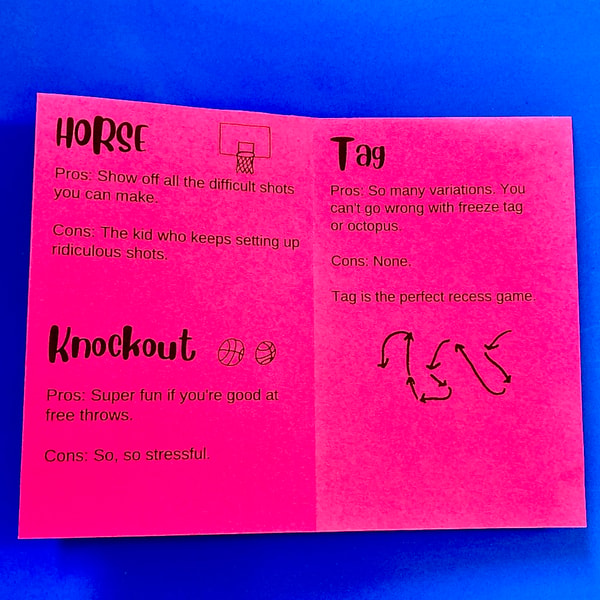 HORSE
Pros: Show off all the difficult shots
you can make.
Cons: The kid who keeps setting up
ridiculous shots.
Knockout
Pros: Super fun if you're good at
free throws.
Cons: So, so stressful.
Tag
Pros: So many variations. You
can't go wrong with freeze tag
or octopus.
Cons: None.
Tag is the perfect recess game.